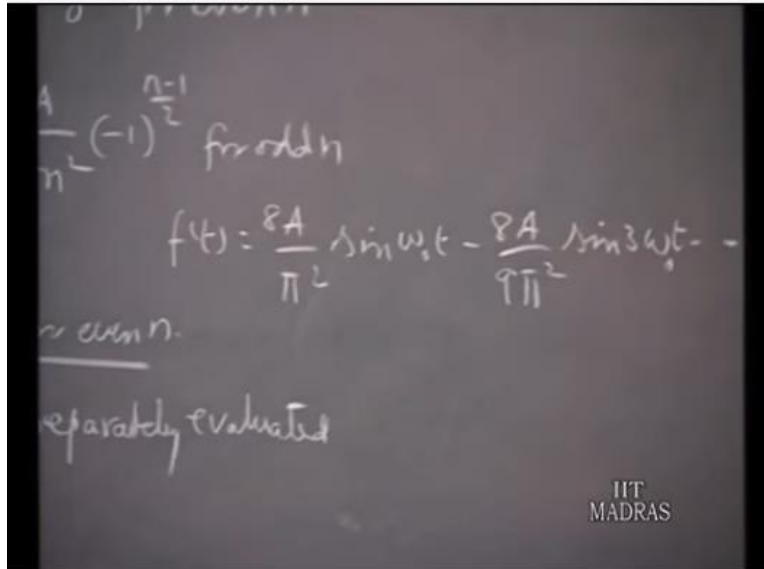 for even n
A/n² (-1)^((n-1)/2) for odd n
f(t) = 8A/π² sin ω₀t - 8A/9π² sin 3ω₀t - -
even n.
eparately evaluated
IIT
MADRAS